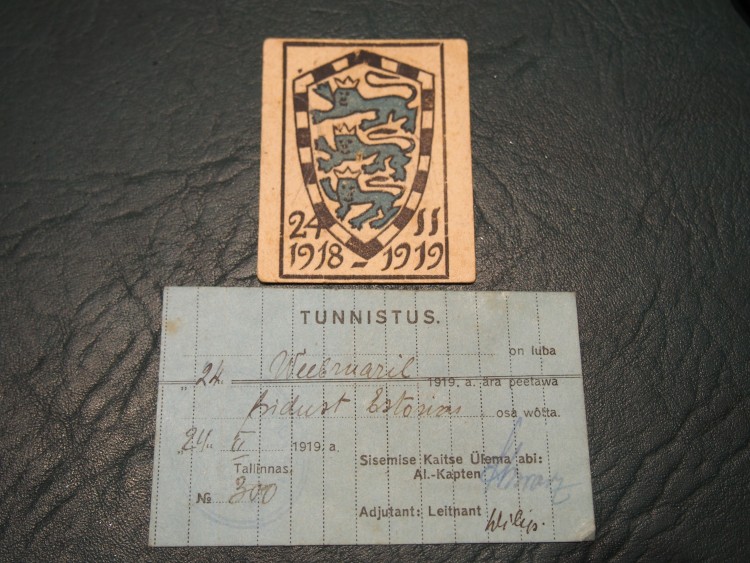 24 II
1918 - 1919
TUNNISTUS.
on luba
"24. Weebruaril 1919. a. ära peetawa
pidust Estonias osa wõtta.
"24" II 1919. a.
Tallinnas,
Sisemise Kaitse Ülema abi:
Al.-Kapten
№ 300
Adjutant: Leitnant